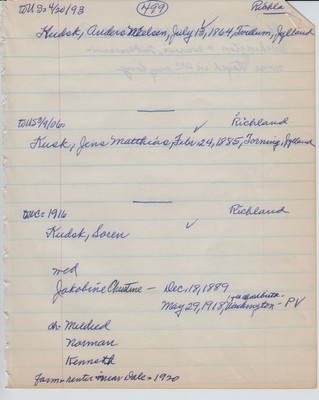 to US = 4/20/93 (499) Richla
Kudsk, Anders Nielsen, July 13, 1864, Tordum, Jylland
to US 3/9/06 Richland
Kusk, Jens Matthias, Febr. 24, 1885, Torning, Jylland
to WC = 1916 Richland
Kudsk, Soren
md
Jakobine Christine - Dec. 18, 1889
May 29, 1918, Washington - PV
ch - Mildred
Norman
Kenneth
Farm = renter = near Dale = 1920